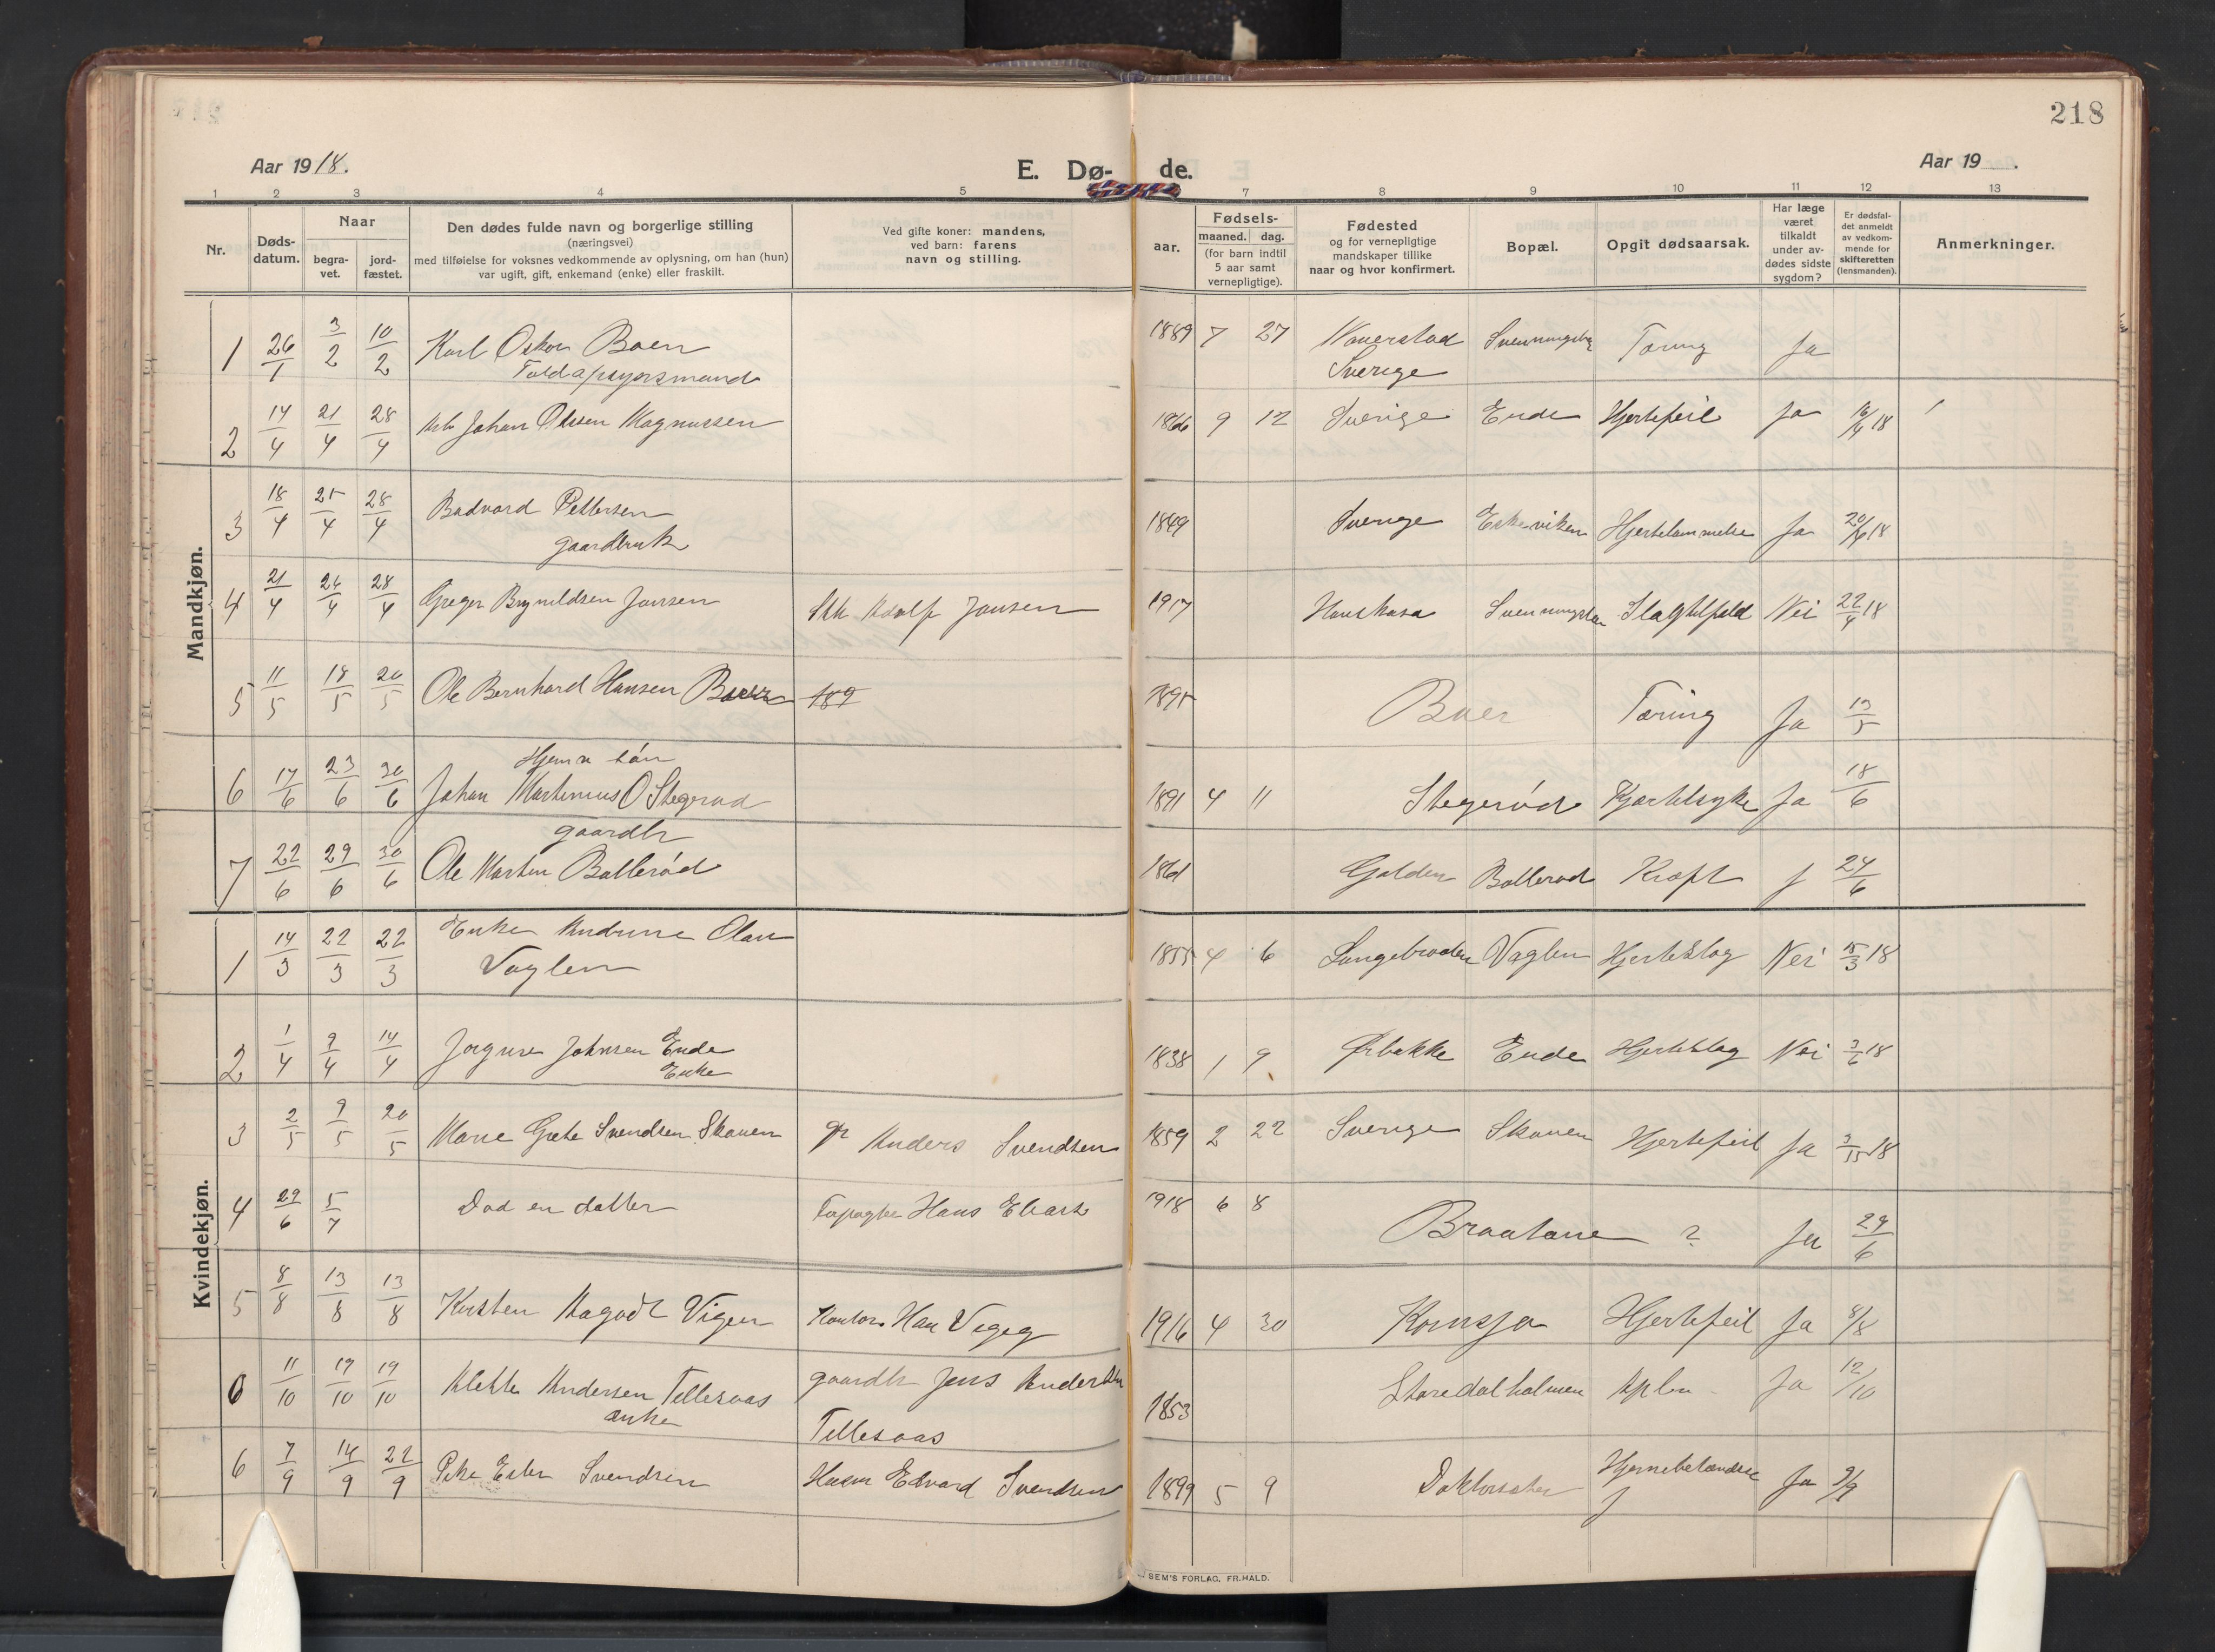 218
Aar 1918.
E. Dø- de.
Aar 19 .
1 2 3 4 5 7 8 9 10 11 12 13
Nr.
Døds-
datum.
Naar
begra-
vet.
jord-
fæstet.
Den dødes fulde navn og borgerlige stilling
(næringsvei)
med tilføielse for voksnes vedkommende av oplysning, om han (hun)
var ugift, gift, enkemand (enke) eller fraskilt.
Ved gifte koner: mandens,
ved barn: farens
navn og stilling.
Fødsels-
aar.
maaned. dag.
(for barn indtil
5 aar samt
vernepligtige).
Fødested
og for vernepligtige
mandskaper tillike
naar og hvor konfirmert.
Bopæl.
Opgit dødsaarsak.
Har læge
været
tilkaldt
under av-
dødes sidste
sygdom?
Er dødsfal-
det anmeldt
av vedkom-
mende for
skifteretten
(lensmanden).
Anmerkninger.
Mandkjøn.
1 26/1 3/2 10/2 Karl Oskar Baer 1889 7 27 Tæring Ja
Sverige
2 14/4 21/4 28/4 Johan Olssen Magnussen 1866 9 12 Sverige Ende Hjertefeil Ja 16/4 18
3 18/4 25/4 28/4 Badvard Pettersen 1849 Sverige Eskeviken Hjertelammelse Ja 20/4 18
gaardbruk
4 21/4 26/4 28/4 Greger Brynildsen Jansen Adolf Jansen 1917 Slagtilfeld Nei 22/4 18
5 11/5 18/5 20/5 Ole Bernhard Hansen Baer 189 1895 Baer Tæring Ja 13/5
Hjemv søn
6 17/6 23/6 30/6 Johan Martinius O Stegerød 1891 4 11 Stegerød Hjertesyke Ja 18/6
gaardbr
7 22/6 29/6 30/6 Ole Martin Ballerød 1861 Ballerød Kræft J 24/6
Kvindekjøn.
1 14/3 22/3 22/3 Enke Andrine Olava 1855 4 6 Vaglen Hjerteslag Nei 15/3 18
Vaglen
2 1/4 9/4 14/4 Jørgine Johnsen Ende 1838 1 9 Ørbekke Ende Hjerteslag Nei 3/6 18
Enke
3 2/5 9/5 20/5 Marie Grete Svendsen Skauen Anders Svendsen 1859 2 22 Sverige Skauen Hjertefeil Ja 3/15 18
4 29/6 5/7 Død en datter Hans 1918 6 8 Braatane ? Ja 29/6
5 8/8 13/8 13/8 Kirsten Vigen 1916 4 30 Kornsjø Hjertefeil Ja 8/8
6 11/10 19/10 19/10 Andersen Tellesaas gaardbr Jens Andersen 1853 Ja 12/10
enke
Tellesaas
6 7/9 14/9 22/9 Ester Svendsen Edvard Svendsen 1899 5 9 Hjernebetændelse Ja 9/9
SEM'S FORLAG, FR.HALD.